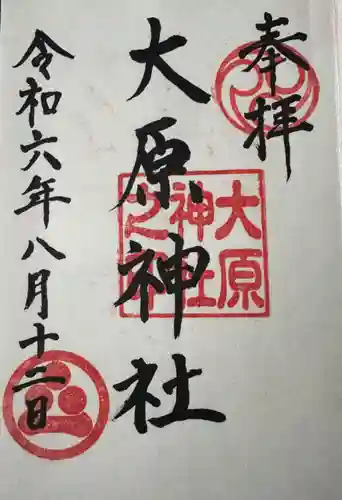 奉拝
大原神社
令和六年八月十二日
大原
神社
之印